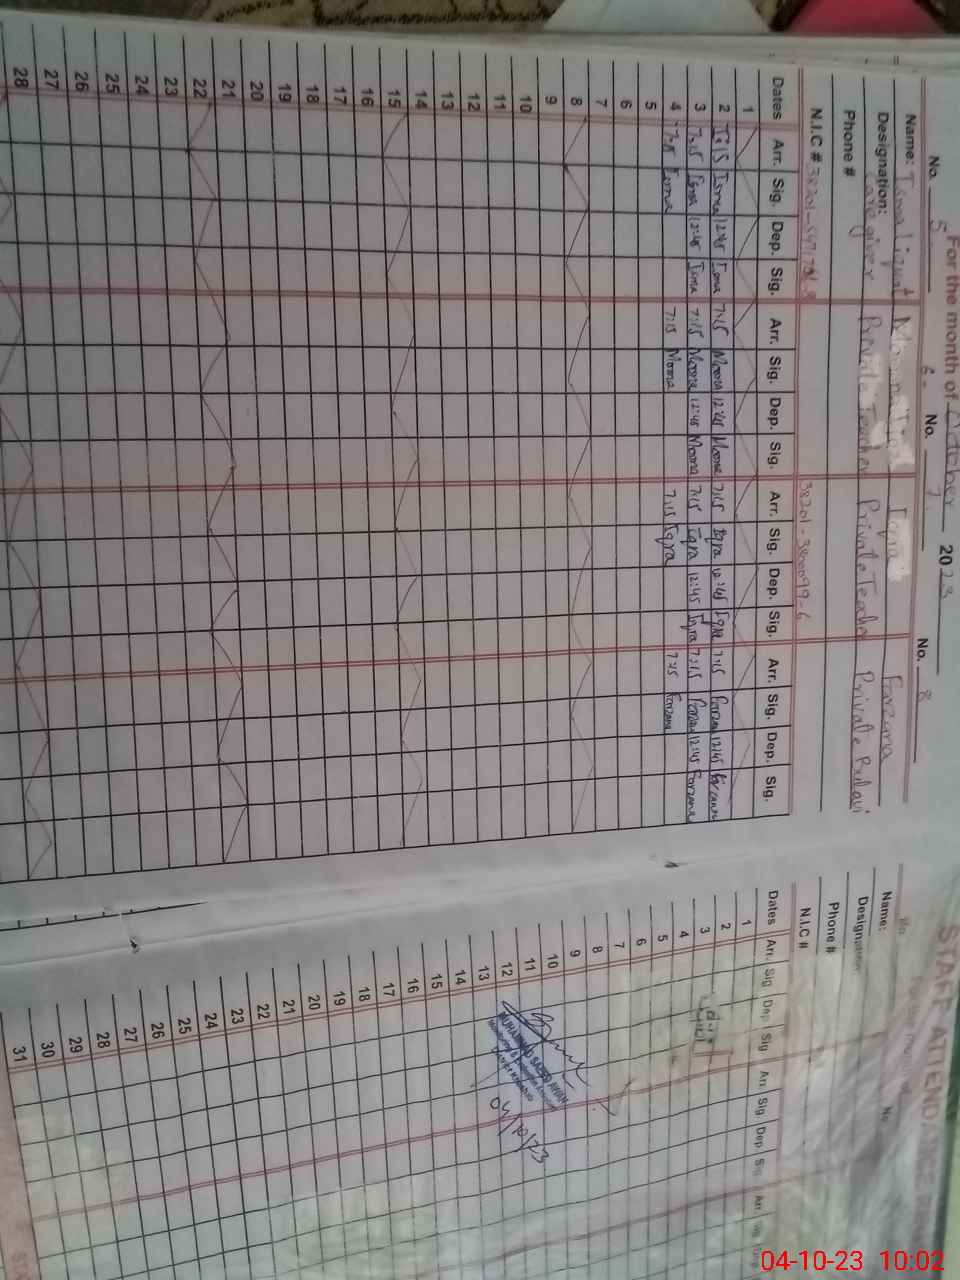 For the month of October 2023
No. 5 6. No. 7. No. 8
Name: Iqra Farzana
Designation: Care giver Private Teacher Private Teacher Private
Phone #
N.I.C #
Dates Arr. Sig. Dep. Sig. Arr. Sig. Dep. Sig. Arr. Sig. Dep. Sig. Arr. Sig. Dep. Sig.
1
2 7:15 Isma 12:45 Isma 7:15 Moona 12:45 Moona 7:15 Iqra 12:45 Iqra 7:15 Farzana 12:45 Farzana
3 7:15 Isma 12:45 Isma 7:15 Moona 12:45 Moona 7:15 Iqra 12:45 Iqra 7:15 Farzana 12:45 Farzana
4 7:15 Isma 7:15 Moona 7:15 Iqra 7:15 Farzana
5
6
7
8
9
10
11
12
13
14
15
16
17
18
19
20
21
22
23
24
25
26
27
28
STAFF ATTENDANCE
No
Name:
Designation
Phone #
N.I.C #
Dates Arr. Sig Dep Sig Arr Sig Dep Sig Arr
1
2
3
4
5
6
7
8
9
10
11
12
13
14
15
16
17
18
19
20
21
22
23
24
25
26
27
28
29
30
31
MUHAMMAD SAEED AWAN
04/10/23
04-10-23 10:02